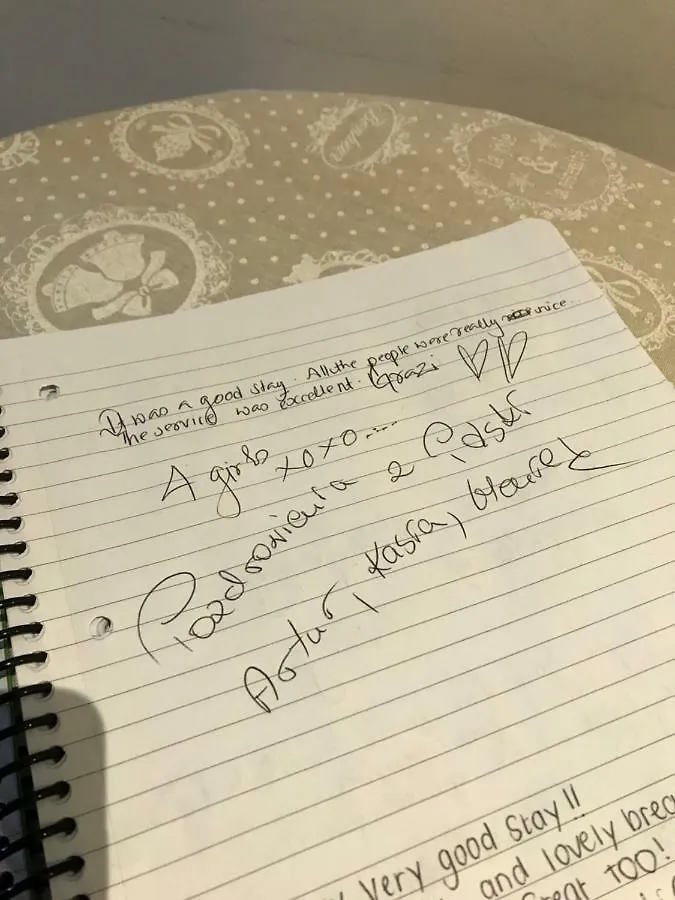 It was a good stay. All the people were really nice...
The service was excellent. Grazi
A girls xoxo....
Pozdrowienia z Polski
Artur, Kasia,
Very good stay!!
and lovely brea
great TOO!
Bonheur
la vie
&